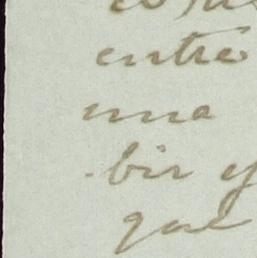 entre
una
bir y
que